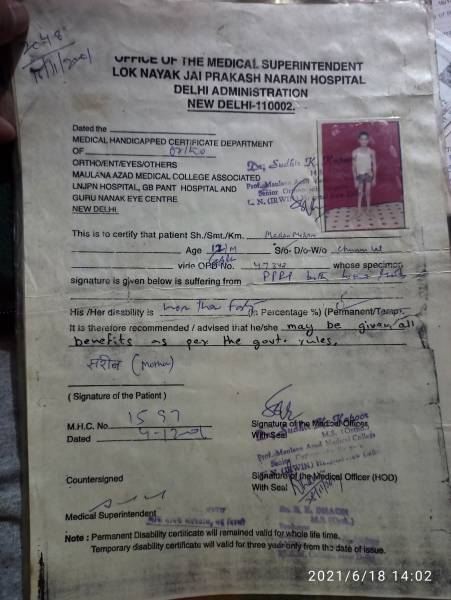 OFFICE OF THE MEDICAL SUPERINTENDENT
LOK NAYAK JAI PRAKASH NARAIN HOSPITAL
DELHI ADMINISTRATION
NEW DELHI-110002.
Dated the
MEDICAL HANDICAPPED CERTIFICATE DEPARTMENT
OF Ortho
ORTHO/ENT/EYES/OTHERS
MAULANA AZAD MEDICAL COLLEGE ASSOCIATED
LNJPN HOSPITAL, GB PANT HOSPITAL AND
GURU NANAK EYE CENTRE
NEW DELHI.
Dr. Sudhir K. Kapoor
Prof. Maulana Azad
Senior
L. N. (IRWIN)
This is to certify that patient Sh./Smt./Km.
Age 12/M S/o- D/o-W/o
vide ORB No. whose specimen
signature is given below is suffering from PPRP both
His /Her disability is Percentage %) (Permanent/Temp.
It is therefore recommended / advised that he/she may be given all
benefits as per the govt. rules.
(Mother)
( Signature of the Patient )
M.H.C. No. 1597
Dated
Signature of the Medical Officer
With Seal
Dr. Sudhir K. Kapoor
M.S. (Ortho)
Prof. Maulana Azad Medical College
Senior
L. N. (IRWIN)
Countersigned
Signature of the Medical Officer (HOD)
With Seal
Medical Superintendent
Note : Permanent Disability certificate will remained valid for whole life time.
Temporary disability certificate will valid for three year only from the date of issue.
2021/6/18 14:02